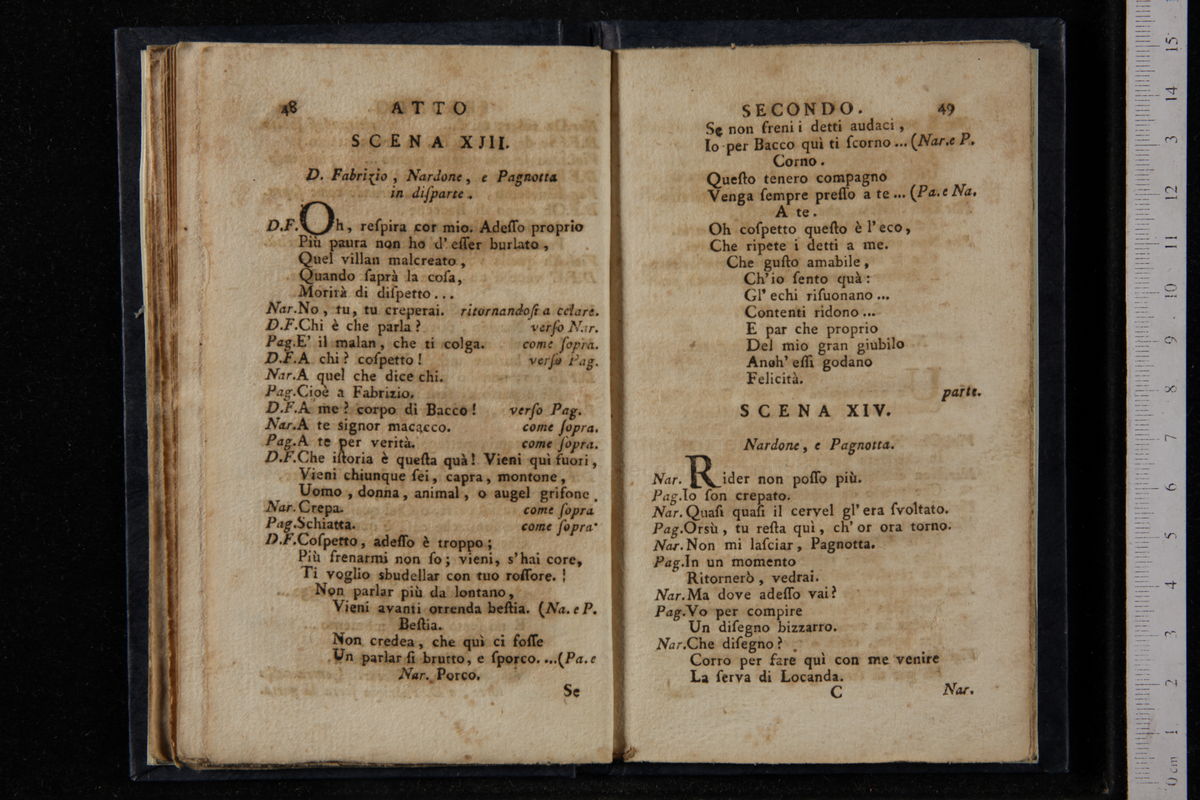 48 ATTO
SCENA XIII.
D. Fabrizio, Nardone, e Pagnotta
in diſparte.
D.F. Oh, reſpira cor mio. Adeſſo proprio
Più paura non ho d'eſſer burlato,
Quel villan malcreato,
Quando ſaprà la coſa,
Morirà di diſpetto...
Nar. No, tu, tu creperai. ritornandoſi a celare.
D.F. Chi è che parla? verſo Nar.
Pag. E' il malan, che ti colga. come ſopra.
D.F. A chi? coſpetto! verſo Pag.
Nar. A quel che dice chi.
Pag. Cioè a Fabrizio.
D.F. A me? corpo di Bacco! verſo Pag.
Nar. A te signor macacco. come ſopra.
Pag. A te per verità. come ſopra.
D.F. Che iſtoria è queſta quà! Vieni quì fuori,
Vieni chiunque ſei, capra, montone,
Uomo, donna, animal, o augel grifone.
Nar. Crepa. come ſopra
Pag. Schiatta. come ſopra.
D.F. Coſpetto, adeſſo è troppo;
Più frenarmi non ſo; vieni, s'hai core,
Ti voglio sbudellar con tuo roſſore. !
Non parlar più da lontano,
Vieni avanti orrenda beſtia. (Na. e P.
Beſtia.
Non credea, che quì ci foſſe
Un parlar ſi brutto, e ſporco. ...(Pa. e
Nar. Porco.
Se
SECONDO. 49
Se non freni i detti audaci,
Io per Bacco quì ti ſcorno... (Nar. e P.
Corno.
Queſto tenero compagno
Venga ſempre preſſo a te... (Pa. e Na.
A te.
Oh coſpetto queſto è l'eco,
Che ripete i detti a me.
Che guſto amabile,
Ch'io ſento quà:
Gl' echi riſuonano...
Contenti ridono...
E par che proprio
Del mio gran giubilo
Anch' eſſi godano
Felicità.
parte.
SCENA XIV.
Nardone, e Pagnotta.
Nar. Rider non poſſo più.
Pag. Io ſon crepato.
Nar. Quaſi quaſi il cervel gl'era ſvoltato.
Pag. Orsù, tu reſta quì, ch'or ora torno.
Nar. Non mi laſciar, Pagnotta.
Pag. In un momento
Ritornerò, vedrai.
Nar. Ma dove adeſſo vai?
Pag. Vo per compire
Un diſegno bizzarro.
Nar. Che diſegno?
Corro per fare quì con me venire
La ſerva di Locanda.
C Nar.
0 cm 1 2 3 4 5 6 7 8 9 10 11 12 13 14 15